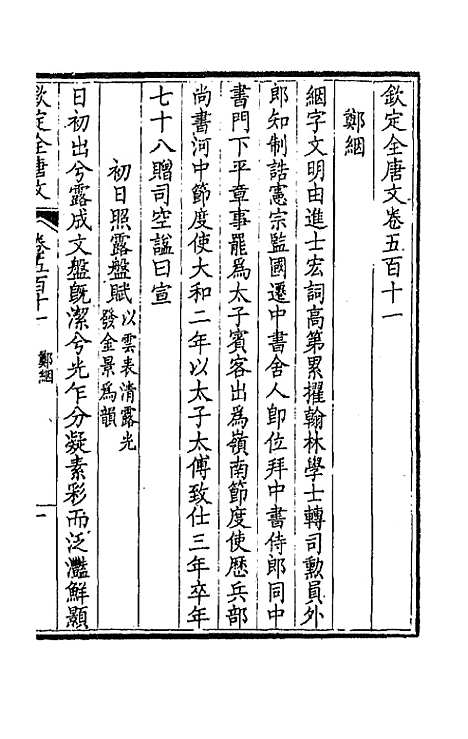 欽定全唐文卷五百十一
鄭絪
絪字文明由進士宏詞高第累擢翰林學士轉司勳員外
郎知制誥憲宗監國遷中書舍人卽位拜中書侍郎同中
書門下平章事罷爲太子賓客出爲嶺南節度使歷兵部
尚書河中節度使大和二年以太子太傅致仕三年卒年
七十八贈司空諡曰宣
初日照露盤賦以雲表清露光
發金景爲韻
日初出兮露成文盤旣潔兮光乍分凝素彩而泛灩鮮顯
欽定全唐文 卷五百十一 鄭絪 一